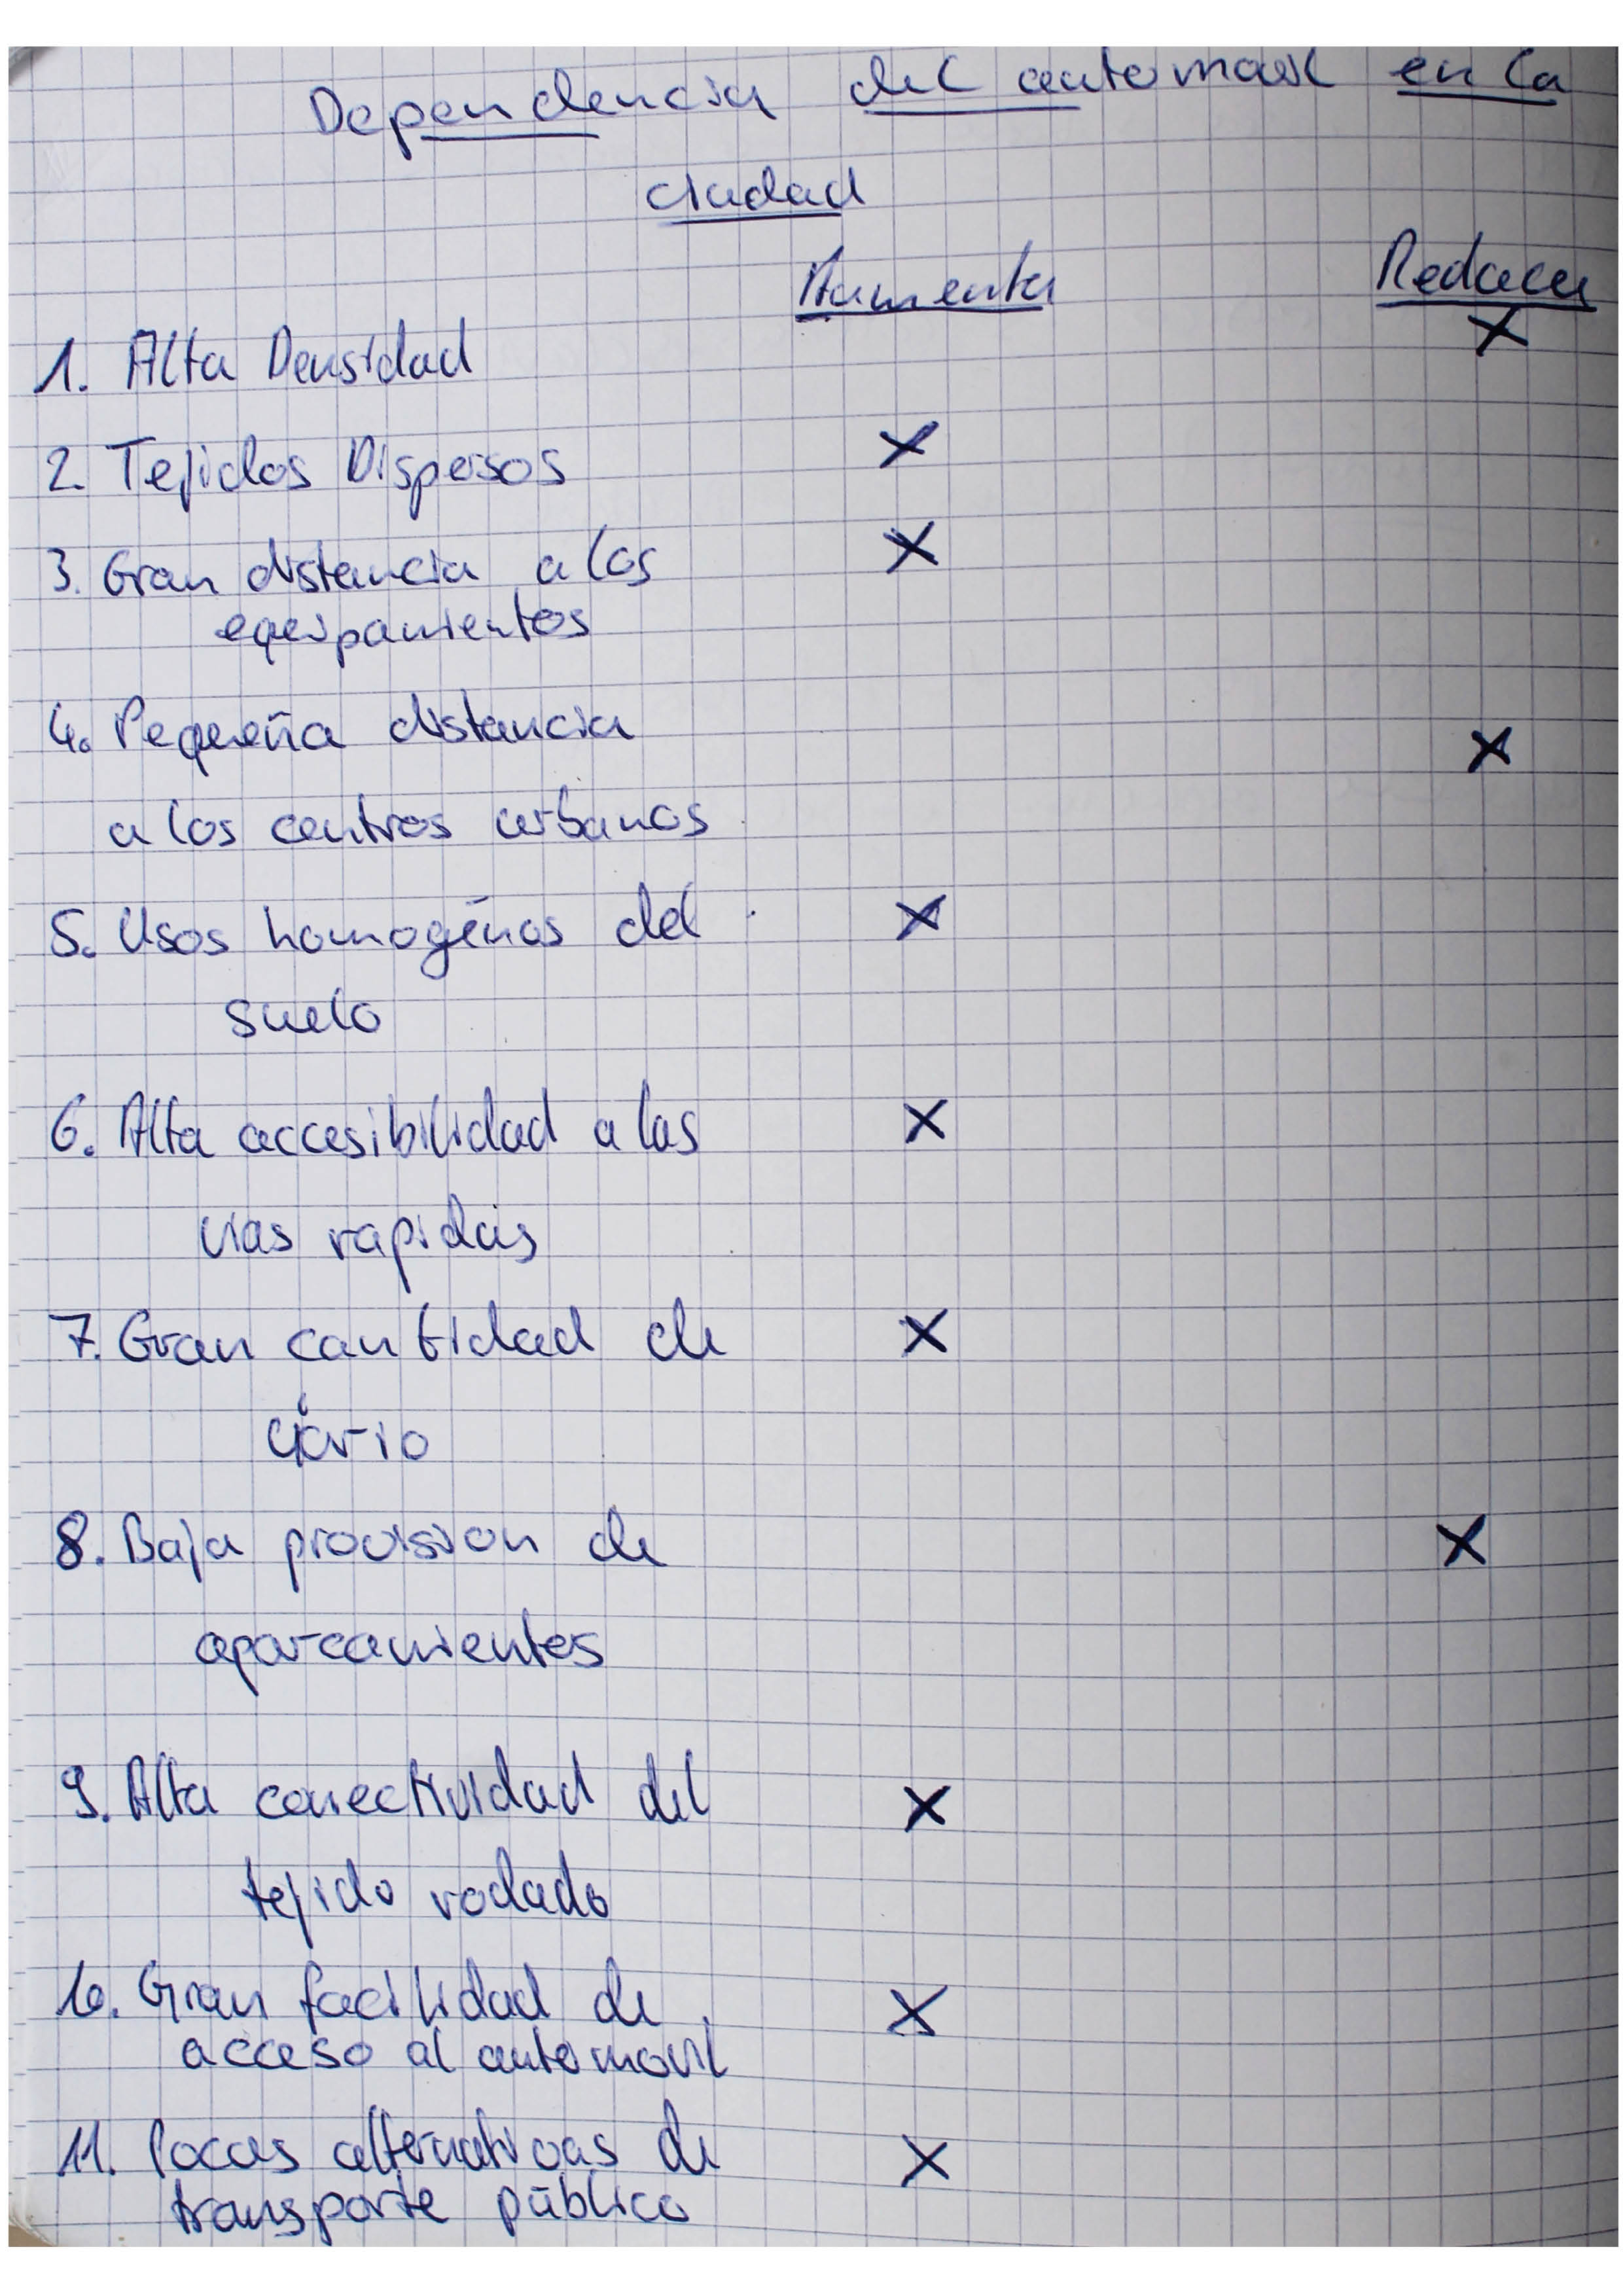 Dependencia del automovil en la
ciudad
Aumenta Reduce
1. Alta Densidad X
2. Tejidos Dispersos X
3. Gran distancia a los X
equipamientos
4. Pequeña distancia X
a los centros urbanos
5. Usos homogénos del X
suelo
6. Alta accesibilidad a las X
vias rapidas
7. Gran cantidad de X
8. Baja provision de X
aparcamientos
9. Alta conectividad del X
tejido rodado
10. Gran facilidad de X
acceso al automovil
11. Pocas alternativas de X
transporte público